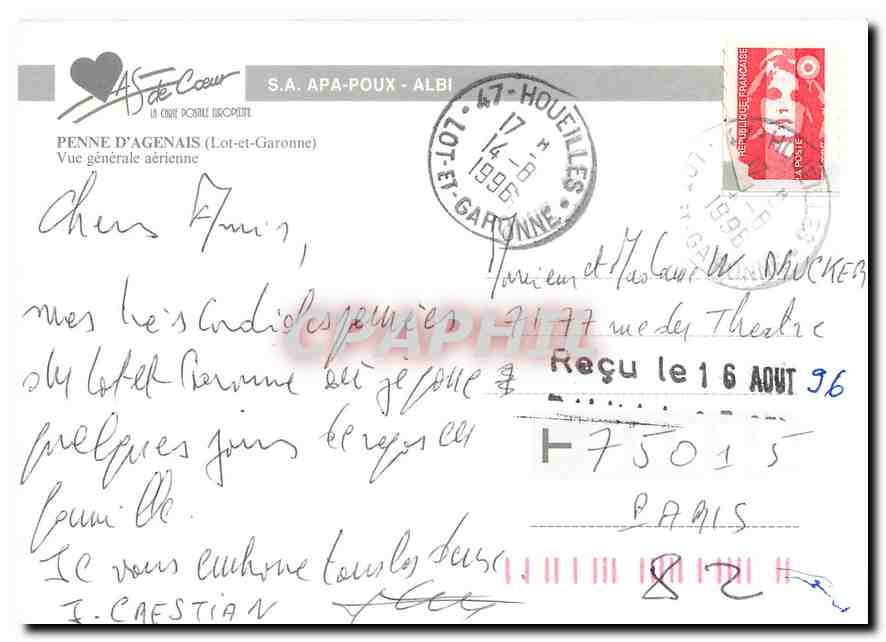 As de Cœur
LA CARTE POSTALE EUROPÉENNE
S.A. APA-POUX - ALBI
PENNE D'AGENAIS (Lot-et-Garonne)
Vue générale aérienne
47-HOUEILLES
17 H
14-8
1996
LOT-ET-GARONNE
RÉPUBLIQUE FRANÇAISE
LA POSTE
1996
Chers Amis,
mes très cordiales pensées
du Lot et Garonne où je passe
quelques jours de repos en
famille.
Je vous embrasse tous les deux.
Monsieur et Madame W DRUCKER
rue du Théatre
Reçu le 16 AOUT 96
T 75015
PARIS
82
CPAPHIL